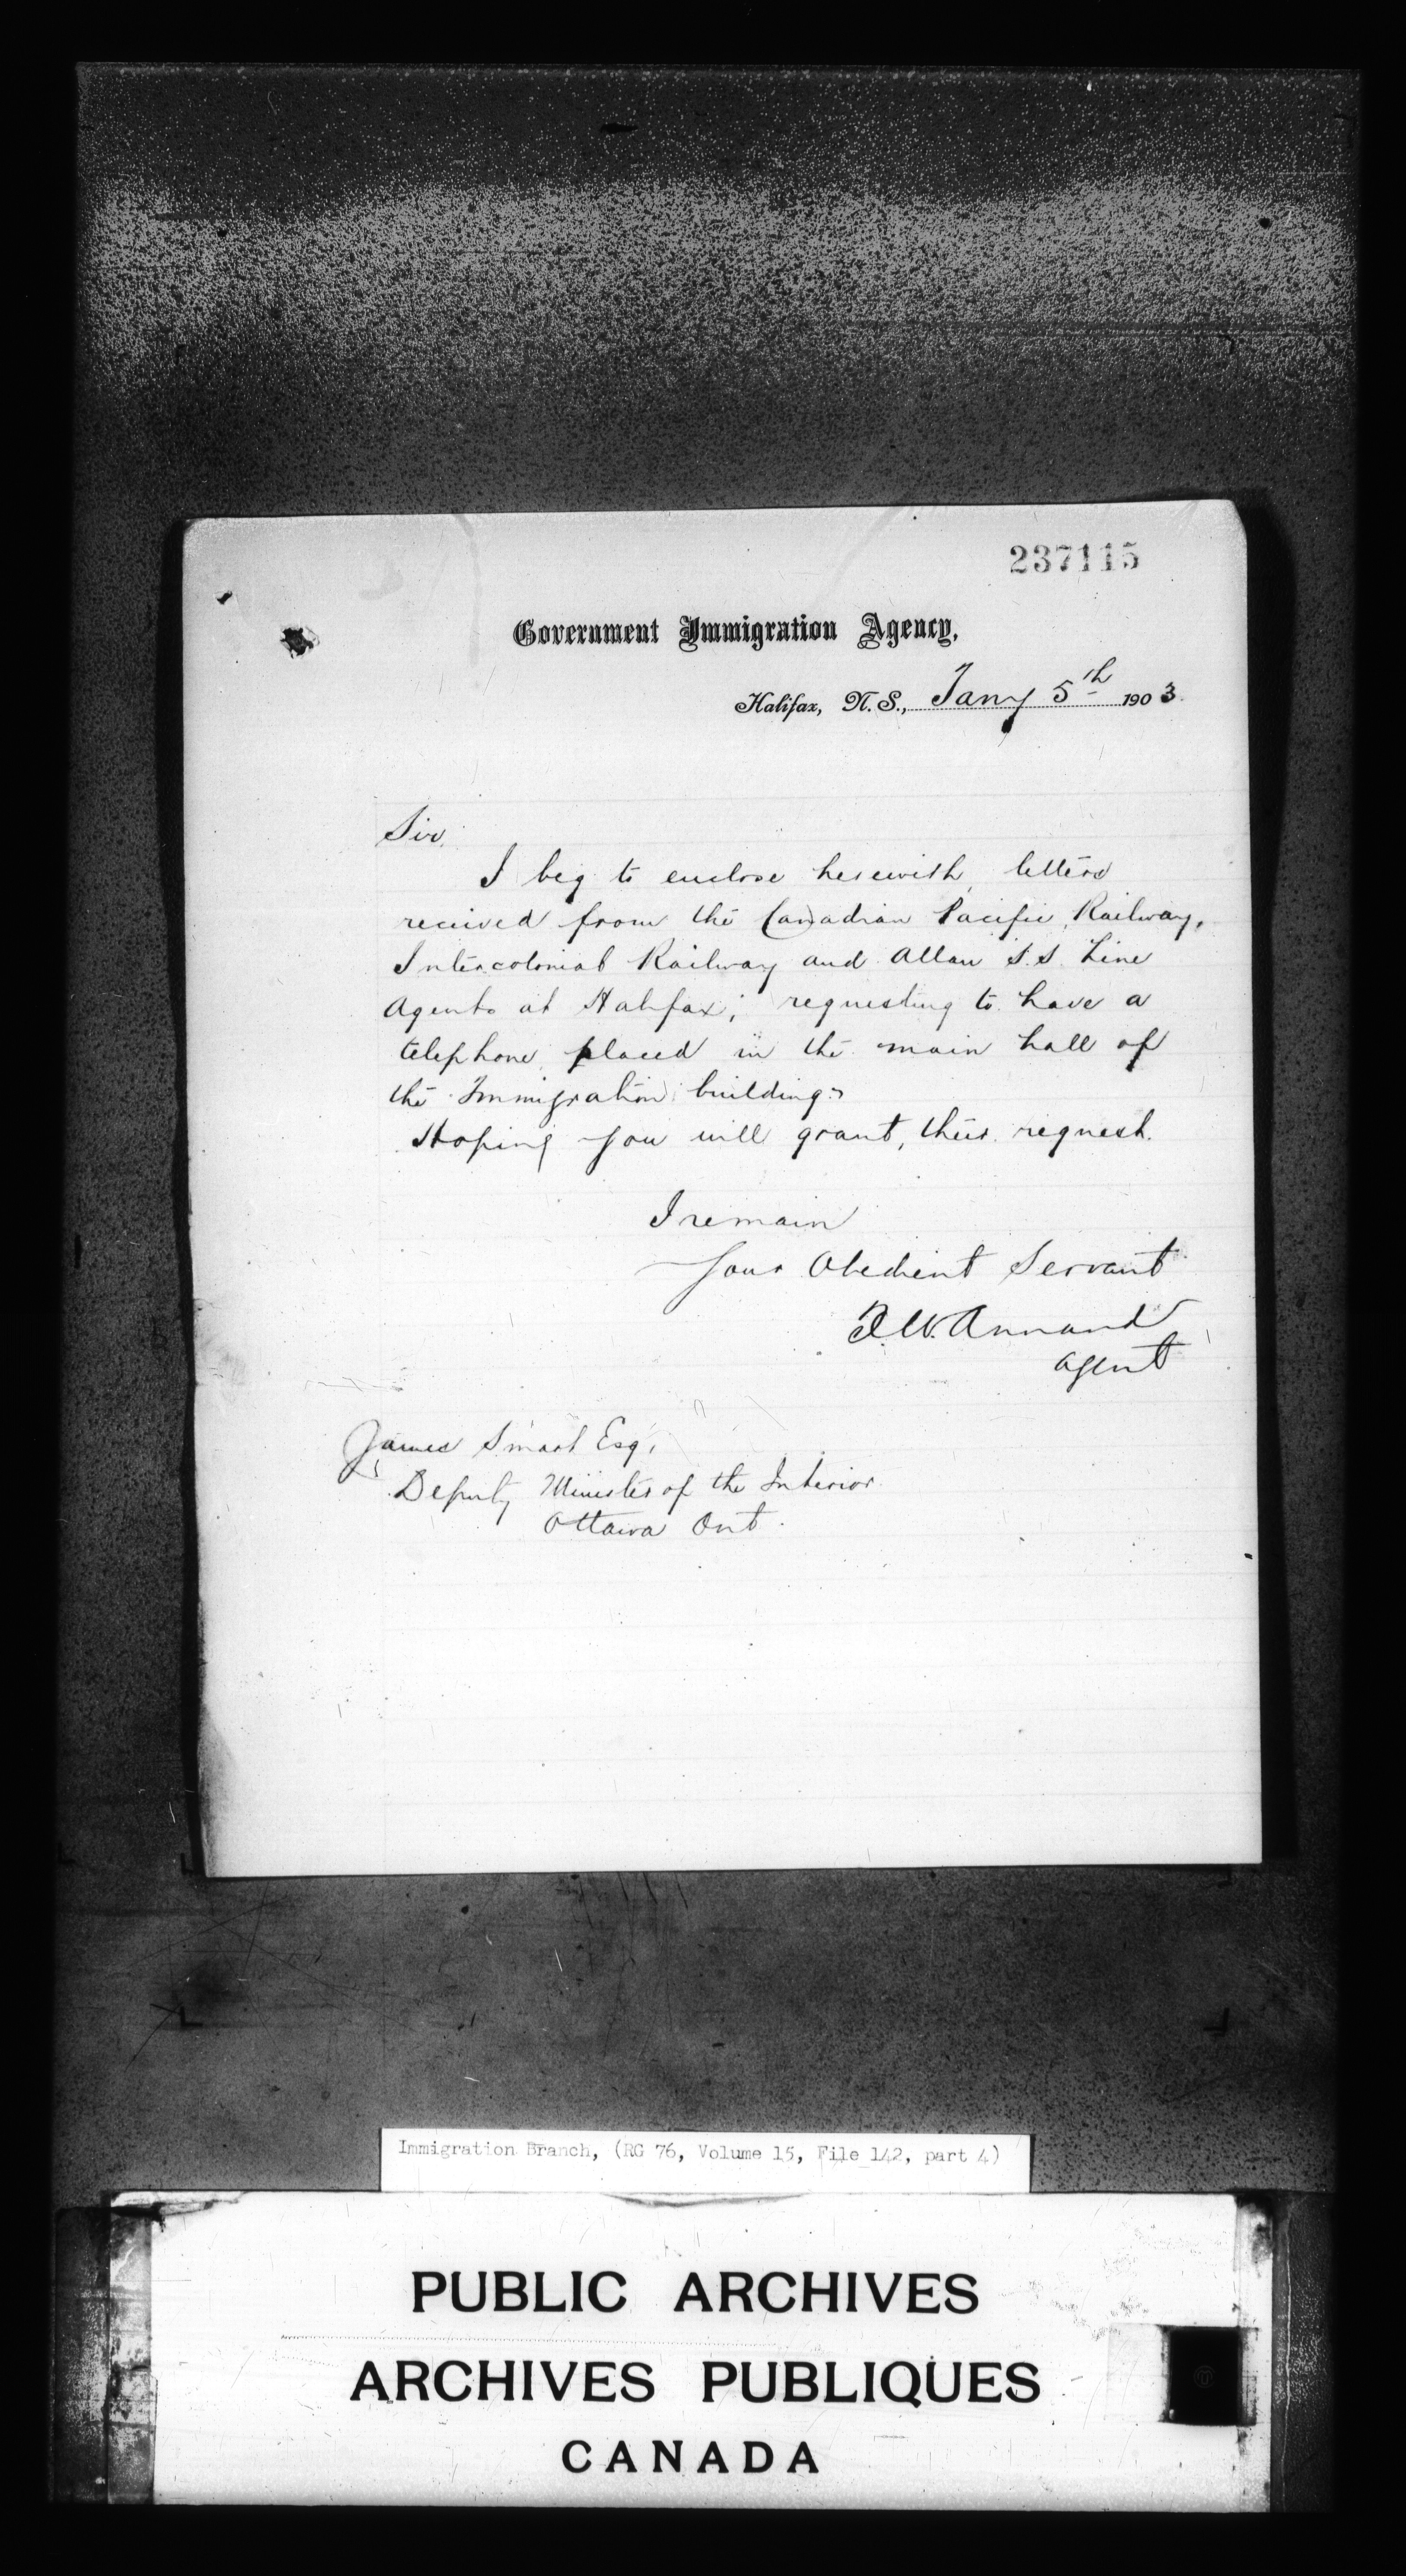 237115
Government Immigration Agency,
Halifax, N. S., Jany 5th 1903
Sir,
I beg to enclose herewith letters
received from the Canadian Pacific Railway,
Intercolonial Railway and Allan S.S. Line
Agents at Halifax; requesting to have a
telephone placed in the main hall of
the Immigration building.
Hoping you will grant, their request.
I remain
Your Obedient Servant
F.W. Annand
Agent
James Smart Esq,
Deputy Minister of the Interior
Ottawa Ont.
Immigration Branch, (RG 76, Volume 15, File 142, part 4)
PUBLIC ARCHIVES
ARCHIVES PUBLIQUES
CANADA